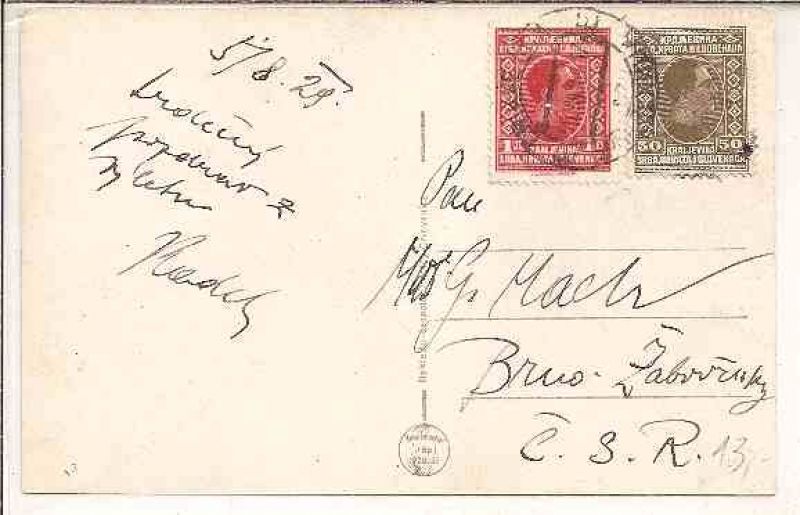 5/8. 29.
srdečný
pozdrav z
výletu
КРАЉЕВИНА
СРБА, ХРВАТА И СЛОВЕНАЦА
1 D
KRALJEVINA
SRBA, HRVATA I SLOVENACA
КРАЉЕВИНА
СРБА, ХРВАТА И СЛОВЕНАЦА
50 50
KRALJEVINA
SRBA, HRVATA I SLOVENACA
Pan
G. Mach
Brno - Žabovřesky
Č. S. R.
13,-